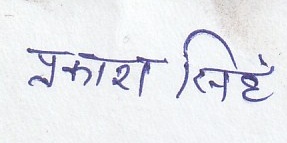 प्रकाश सिहं